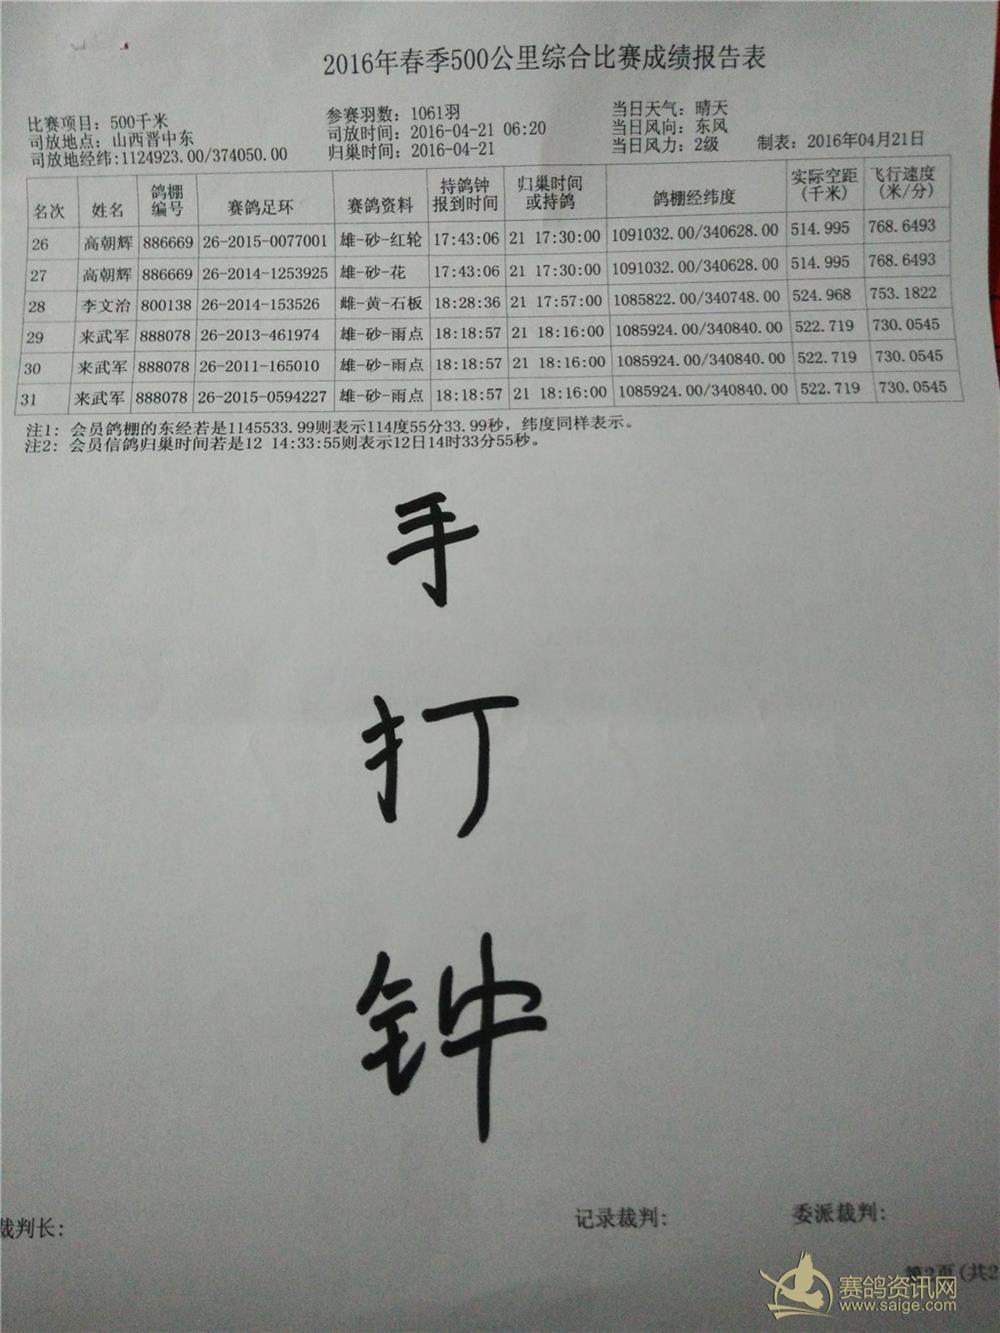 2016年春季500公里综合比赛成绩报告表
比赛项目: 500千米 参赛羽数: 1061羽 当日天气: 晴天
司放地点: 山西晋中东 司放时间: 2016-04-21 06:20 当日风向: 东风
司放地经纬:1124923.00/374050.00 归巢时间: 2016-04-21 当日风力: 2级 制表: 2016年04月21日
名次 姓名 鸽棚编号 赛鸽足环 赛鸽资料 持鸽钟报到时间 归巢时间或持鸽 鸽棚经纬度 实际空距(千米) 飞行速度(米/分)
26 高朝辉 886669 26-2015-0077001 雄-砂-红轮 17:43:06 21 17:30:00 1091032.00/340628.00 514.995 768.6493
27 高朝辉 886669 26-2014-1253925 雄-砂-花 17:43:06 21 17:30:00 1091032.00/340628.00 514.995 768.6493
28 李文治 800138 26-2014-153526 雌-黄-石板 18:28:36 21 17:57:00 1085822.00/340748.00 524.968 753.1822
29 来武军 888078 26-2013-461974 雄-砂-雨点 18:18:57 21 18:16:00 1085924.00/340840.00 522.719 730.0545
30 来武军 888078 26-2011-165010 雄-砂-雨点 18:18:57 21 18:16:00 1085924.00/340840.00 522.719 730.0545
31 来武军 888078 26-2015-0594227 雄-砂-雨点 18:18:57 21 18:16:00 1085924.00/340840.00 522.719 730.0545
注1: 会员鸽棚的东经若是1145533.99则表示114度55分33.99秒，纬度同样表示。
注2: 会员信鸽归巢时间若是12 14:33:55则表示12日14时33分55秒。
手
打
钟
裁判长: 记录裁判: 委派裁判:
第2页(共2
赛鸽资讯网
www.saige.com